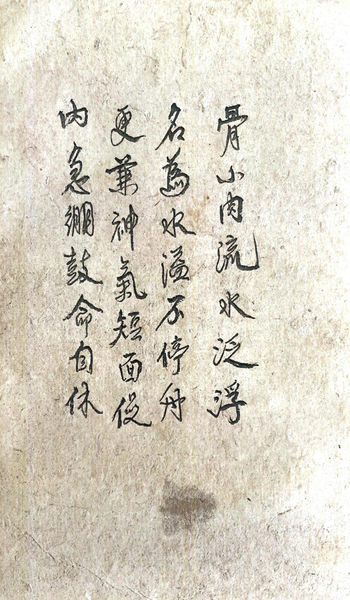 骨小肉流水泛浮
名為水溢不停舟
更兼神氣短面促
肉急绷鼓命自休